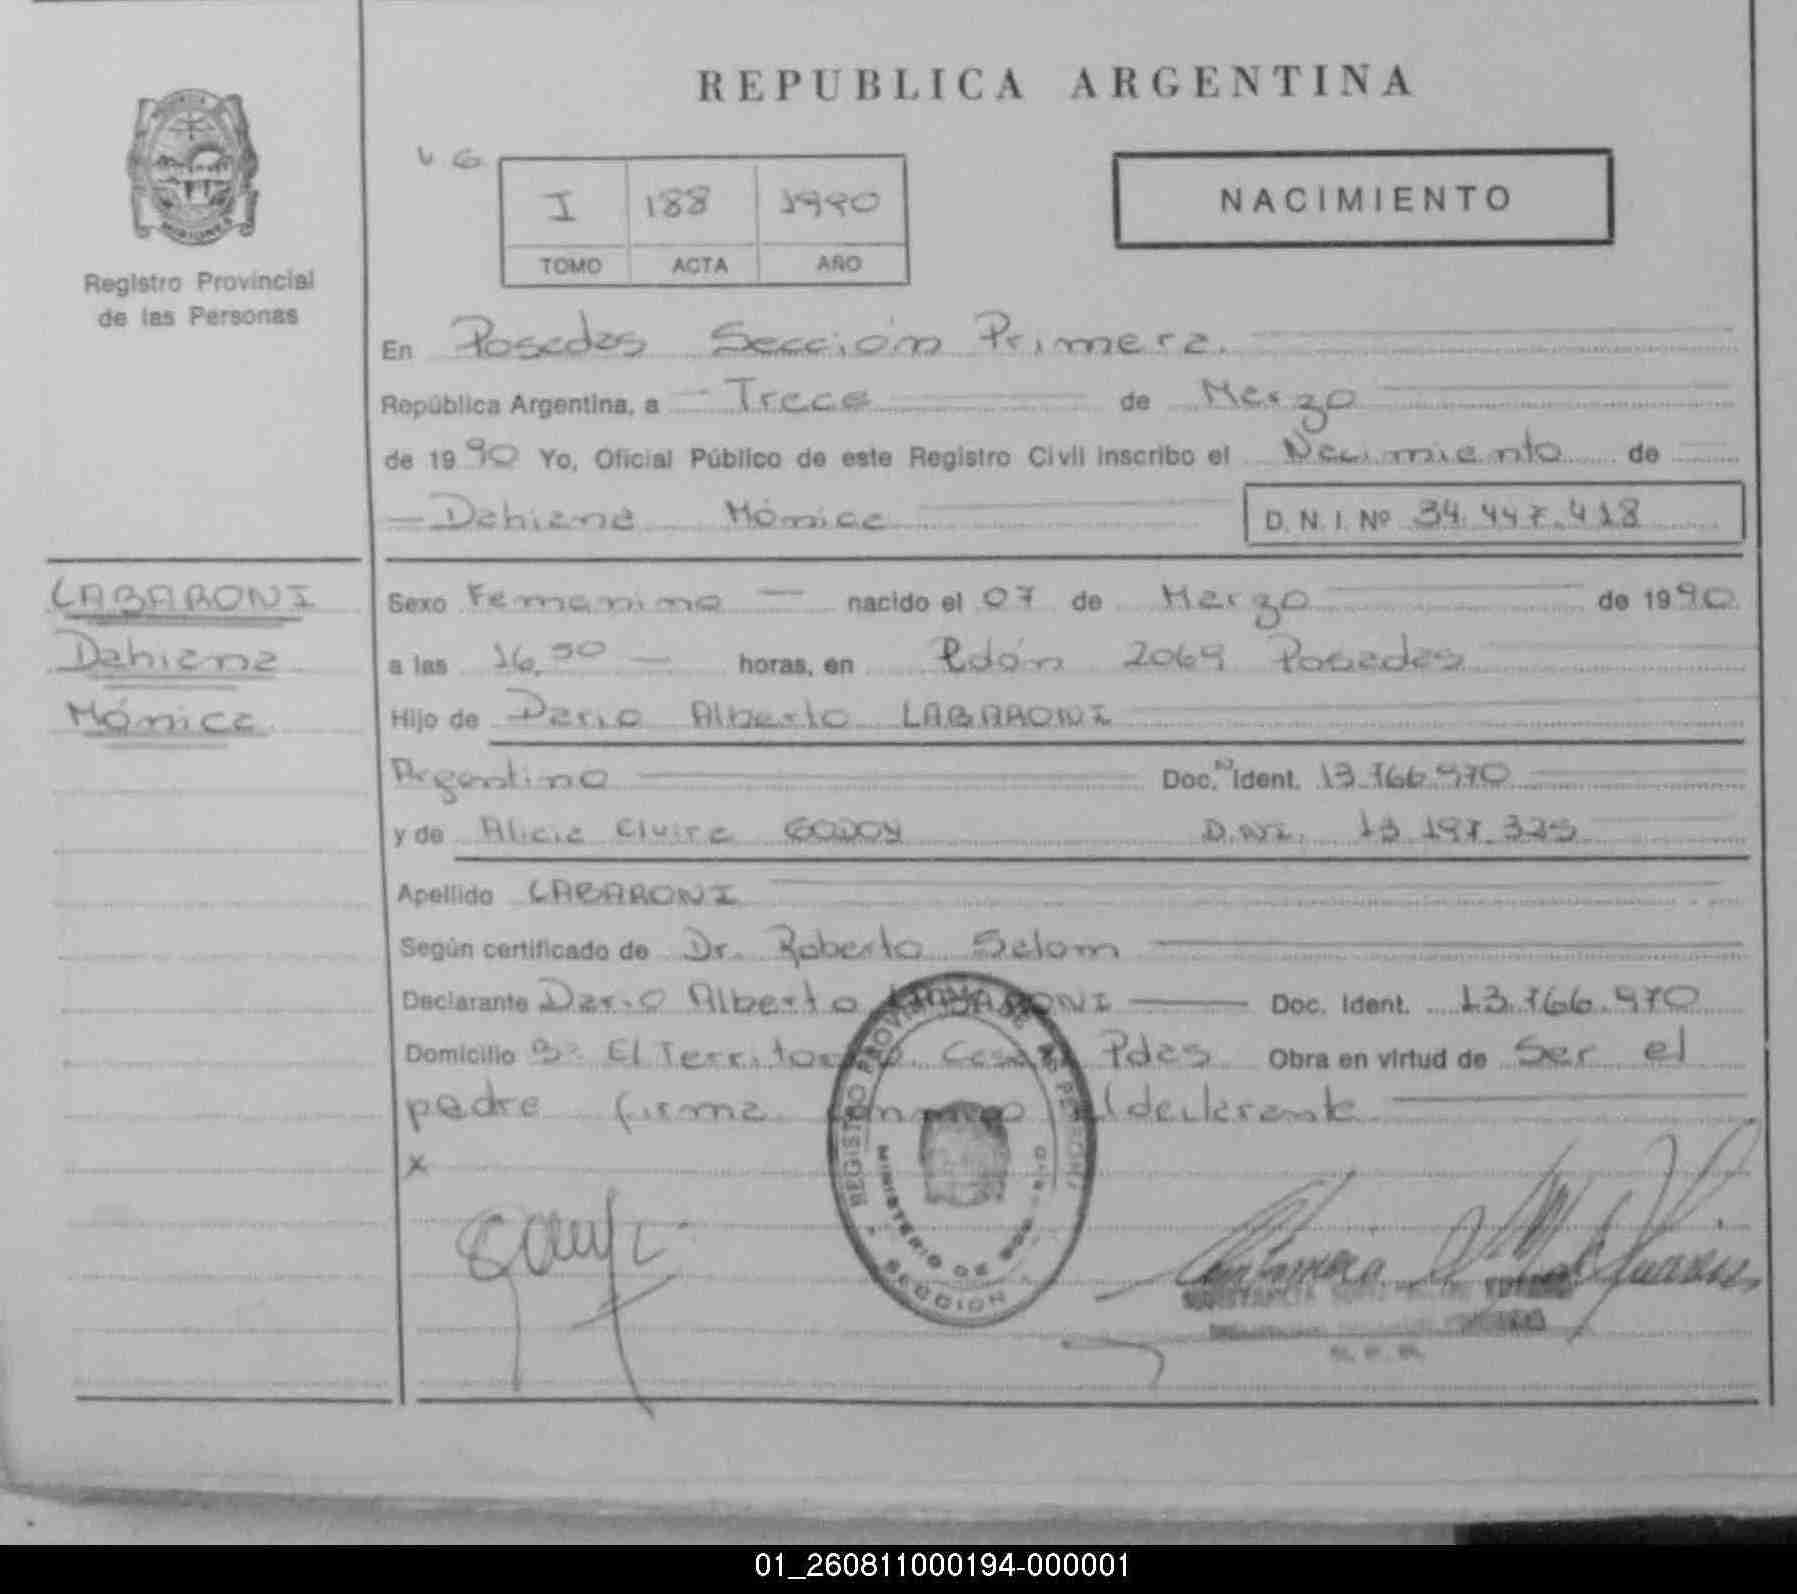 REPUBLICA ARGENTINA
V. G.
I 188 1990
TOMO ACTA AÑO
NACIMIENTO
MISIONES
Registro Provincial
de las Personas
En Posadas Sección Primera.
República Argentina, a Trece de Marzo
de 1990 Yo, Oficial Público de este Registro Civil inscribo el Nacimiento de
Dahiana Mónica D. N. I. Nº 34.447.418
LABARONI
Dahiana
Mónica
Sexo Femenino nacido el 07 de Marzo de 1990
a las 16,50 horas, en 2069 Posadas
Hijo de Dario Alberto LABARONI
Argentino Doc. N Ident. 13.766.970
y de Alicia Elvira GODOY D.N.I. 13.197.325
Apellido LABARONI
Según certificado de Dr. Roberto Selom
Declarante Dario Alberto LABARONI Doc. Ident. 13.766.970
Domicilio Bº El Territorio Casa Pdas Obra en virtud de Ser el
padre firma conmigo el declarante
x
REGISTRO PROVINCIAL DE LAS PERSONAS
MINISTERIO DE GOB
SECCION
01_260811000194-000001